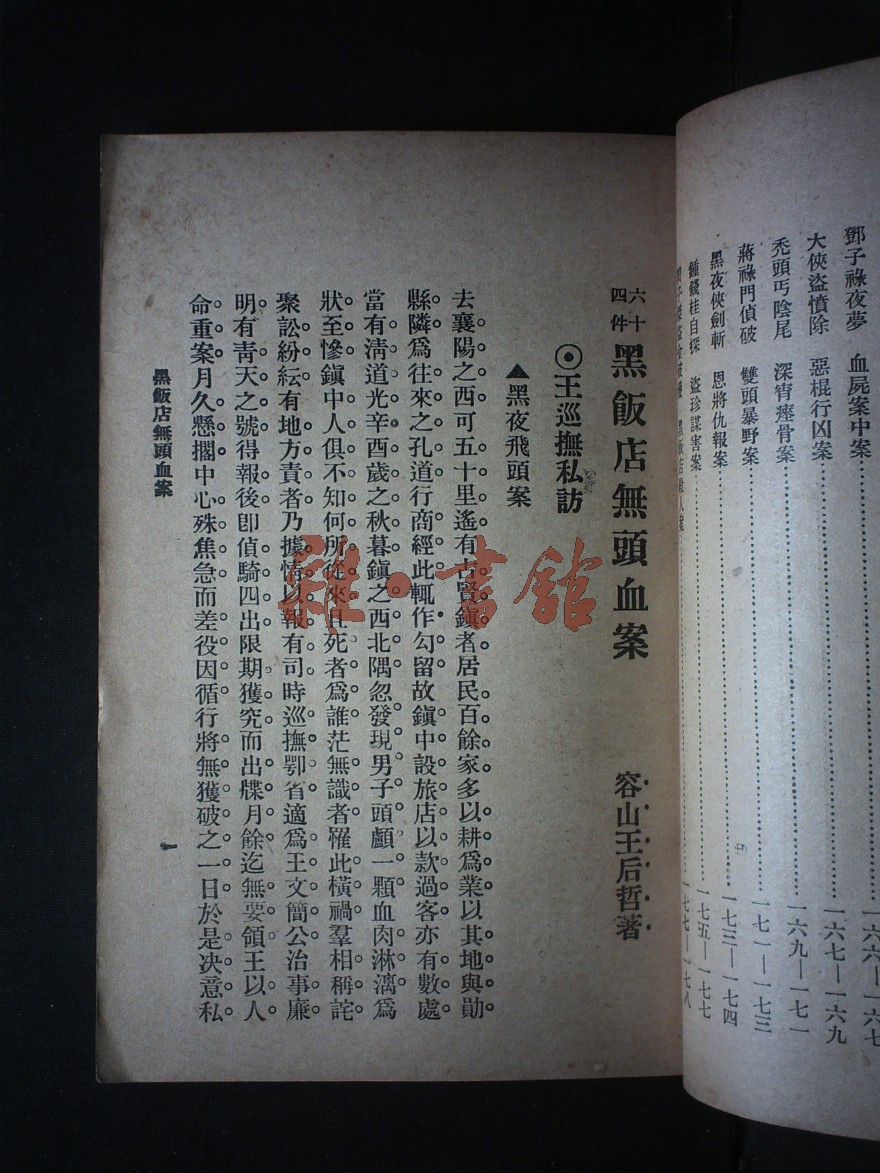 鄧子祿夜夢 血屍案中案⋯⋯一六六—一六七
大俠盜憤除 惡棍行凶案⋯⋯一六七—一六九
禿頭丐陰尾 深宵瘞骨案⋯⋯一六九—一七一
蔣祿門偵破 雙頭暴野案⋯⋯一七一—一七三
黑夜俠劍斬 恩將仇報案⋯⋯一七三—一七四
鍾錢桂自探 盜珍謀害案⋯⋯一七五—一七七
黑飯店殺人案⋯⋯一七七—一七八
六十四件 黑飯店無頭血案 容山王后哲著
⊙王巡撫私訪
▲黑夜飛頭案
去襄陽之西可五十里遙有古賢鎮者居民百餘家多以耕爲業以其地與勛
縣隣爲往來之孔道行商經此輒作勾留故鎮中設旅店以款過客亦有數處
當有淸道光辛酉歲之秋暮鎮之西北隅忽發現男子頭顱一顆血肉淋漓爲
狀至慘鎮中人俱不知何所從來且死者爲誰茫無識者罹此橫禍羣相稱詫
聚訟紛紜有地方責者乃據情以報有司時巡撫鄂省適爲王文簡公治事廉
明有靑天之號得報後卽偵騎四出限期獲究而出牒月餘迄無要領王以人
命重案月久懸擱中心殊焦急而差役因循行將無獲破之一日於是決意私
黑飯店無頭血案
一
雜·書館